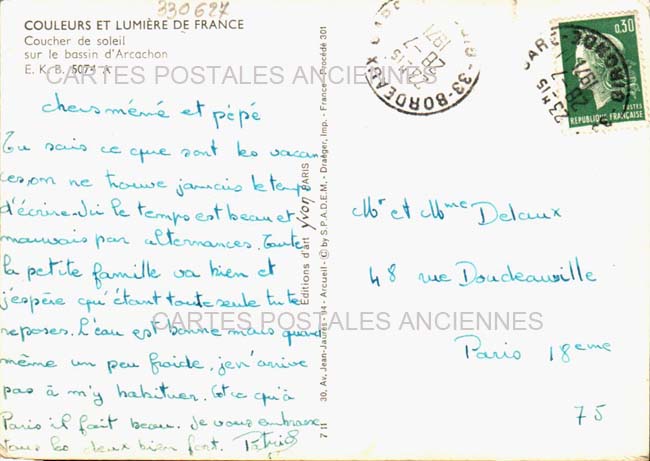 330627
COULEURS ET LUMIÈRE DE FRANCE
Coucher de soleil
sur le bassin d'Arcachon
E. K. B. 5071 A
CARTES POSTALES ANCIENNES
chers mémé et pépé
Tu sais ce que sont les vacan
ces, on ne trouve jamais le temps
d'écrire. Ici le temps est beau et
mauvais par alternances. Toute
la petite famille va bien et
j'espère qu'étant toute seule tu te
reposes. L'eau est bonne mais quand
même un peu froide, je n'arrive
pas à m'y habituer. Est ce qu'à
Paris il fait beau. Je vous embrasse
tous les deux bien fort. Patrick
Editions d'art Yvon PARIS
30, Av. Jean-Jaurès - 94 - Arcueil - © by S.P.A.D.E.M. - Draeger, Imp. - France - Procédé 301
7 11
33-BORDEAUX GARE
23H15
28-7
1971
0,30
POSTES
REPUBLIQUE FRANÇAISE
33-BORDEAUX GARE
23H15
28-7
1971
Mr et Mme Delaux
48 rue Doudeauville
CARTES POSTALES ANCIENNES
Paris 18eme
75